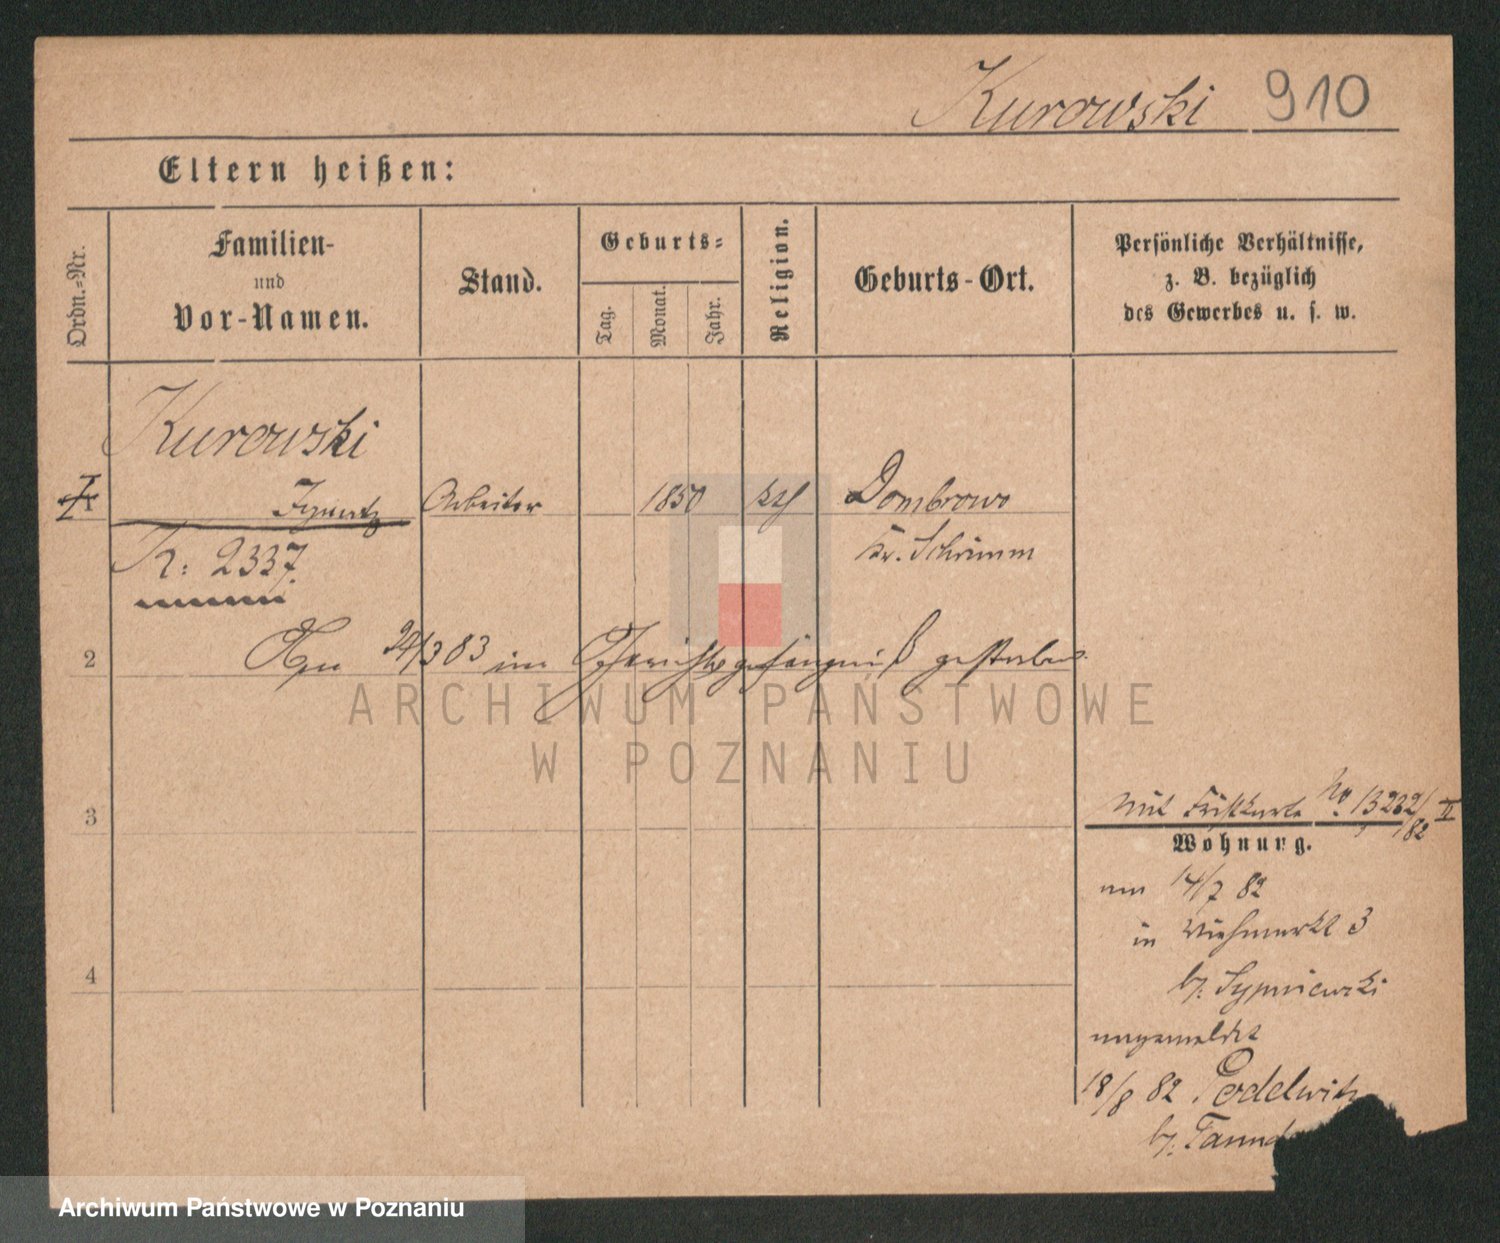 Kurowski 910
Eltern heißen:
Ordn.=Nr.
Familien-
und
Vor-Namen.
Stand.
Geburts=
Tag.
Monat.
Jahr.
Religion.
Geburts-Ort.
Persönliche Verhältnisse,
z. B. bezüglich
des Gewerbes u. s. w.
Kurowski
Ignatz Arbeiter 1850 kth Dombrowo
Kr. Schrimm
R: 2337.
2 24/3 83 im Gerichtsgefängniß gestorben.
3
4
mit No. 13232/82 II
Wohnung.
14/7 82
in Viehmarkt 3
b/. Sypniewski
18/8 82
b/.
ARCHIWUM PAŃSTWOWE
W POZNANIU
Archiwum Państwowe w Poznaniu